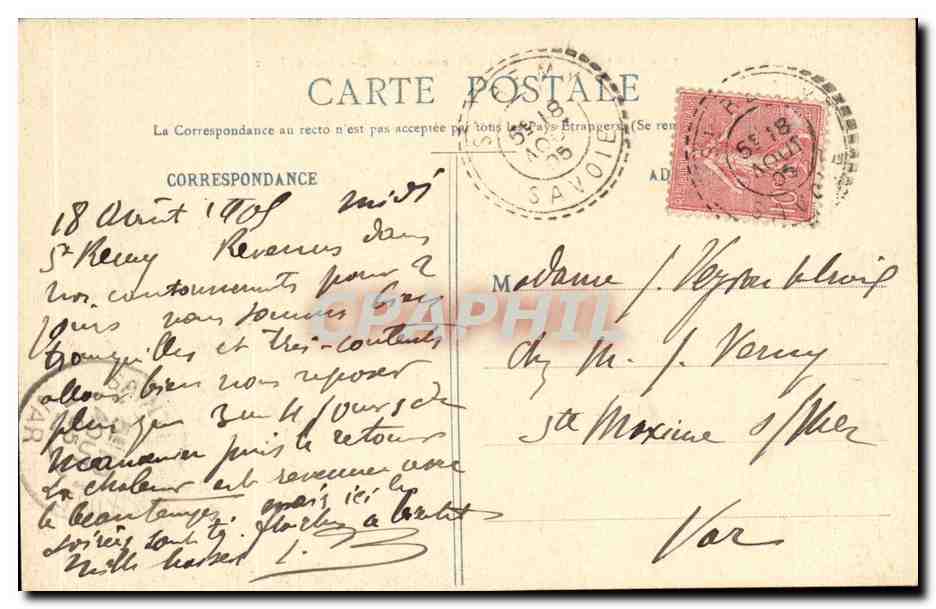 CARTE POSTALE
La Correspondance au recto n'est pas acceptée par tous les Pays Étrangers (Se ren
CORRESPONDANCE
AD
18 Août 1905 midi
St Remy Revenus dans
nos cantonnements pour 2
jours nous sommes bien
tranquilles et très-contents
allons bien nous reposer
plus que 3 ou 4 jours de
manoeuvre puis le retour
La chaleur est revenue avec
le beau temps mais ici les
soirées sont
Mille baisers
Madame J. Veyran
chez M. J. Verny
Ste Maxime s/Mer
Var
SAVOIE
5E 18
AOUT
05
5E 18
AOUT
05
VAR
CPAPHIL